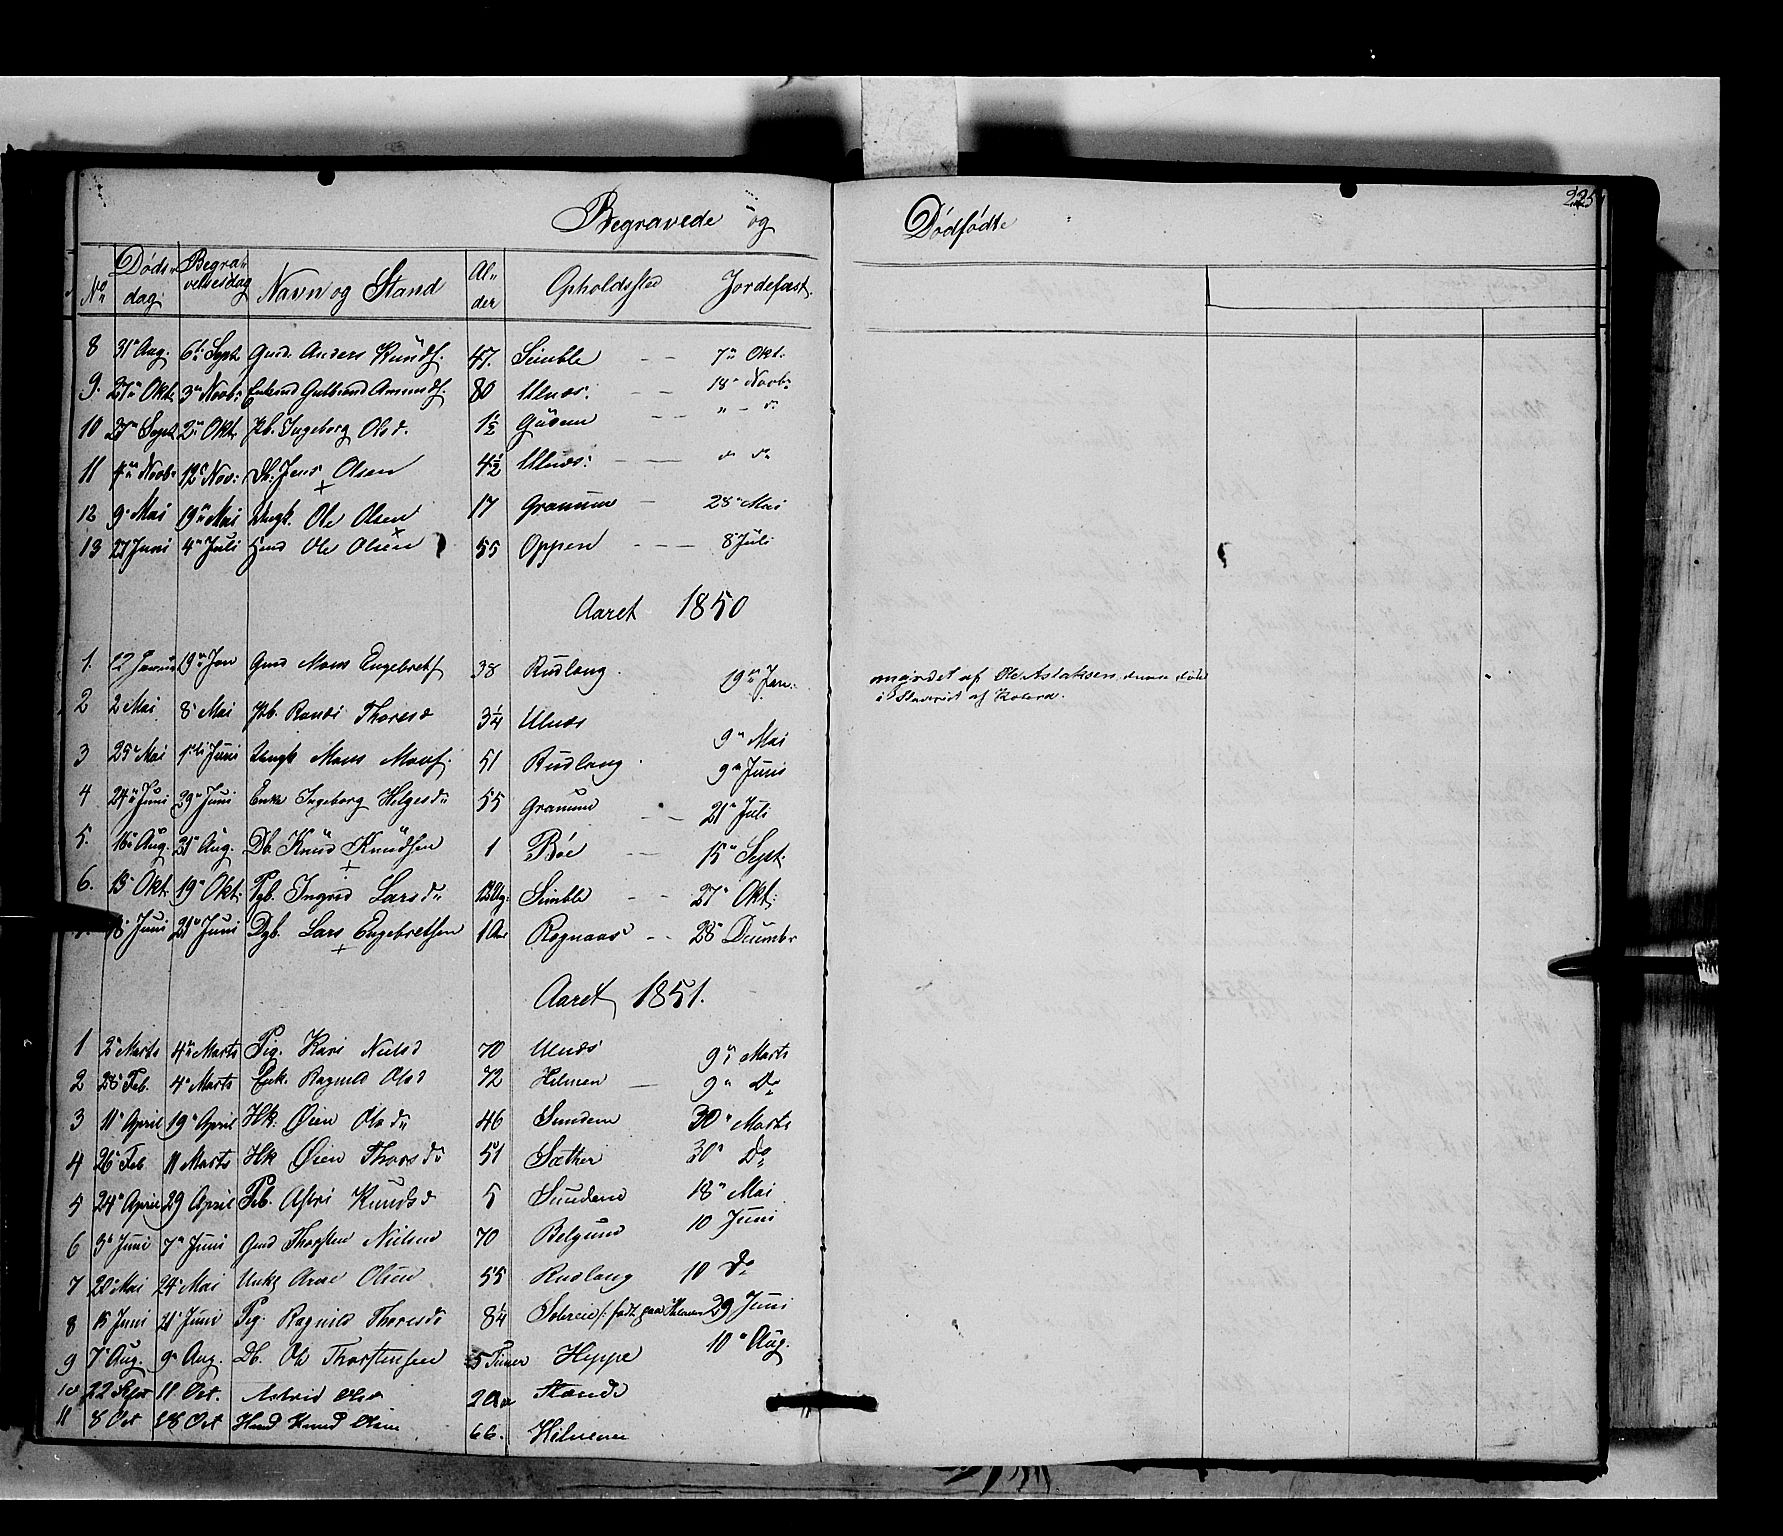 225
Begravede og Dødfødte
No Døds dag Begravelsesdag Navn og Stand Alder Opholdssted Jordefæst.
8 31 Aug. 6 Sept. Gmd. Anders Knuds. 47. Simble — — 7 Okt.
9. 27 Okt. 3 Novb: Gulbrand Amunds. 80 Ulnæs. — — 18 Novb:
10 27 Sept 2 Okt. Pb. Ingeborg Olsd. 1½ Guven — — " - d
11 4 Novb. 12 Nov: Db. Jens Olsen 4½ Ulnæs: — — d
12 9 Mai 19 Mai Ungk. Ole Olsen 17 Granum — 28 Mai
13 27 Juni 4 Juli Hmd Ole Olsen 55 Oppen — — — 8 Juli
Aaret 1850
1. 12 Januar 19 Jan Gmd Mons Engebrets 38 Rudlang. 19 Jan: myrdet af Ole Aslaksen, denne døde
i Slaveriet af Kolera.
2 2 Mai 8 Mai Pb. Randi Thoresd 3¼ Ulnæs 9 Mai
3 25 Mai 1 Juni Ungk Mons Mons. 51 Rudlang. 9 Juni
4 24 Juni 29 Juni Enke Ingeborg Helgesd 55 Granum — — 21 Juli
5. 16 Aug. 21 Aug. Db. Knud Knudsen 1 Bøe — — 15 Sept.
6. 15 Okt. 19 Okt. Pgb. Ingrid Larsd 12 Simble — — 27 Okt.
18 Juni 21 Juni Dgb. Lars Engebretsen 1 Aar Rognaas — — 28 December
Aaret 1851.
1 2 Marts 4 Marts Pig. Kari Nielsd 70 Ulnæs 9 Marts
2 28 Feb. 4 Marts Enk. Ragnild Olsd 72 Hilmen — 9 Do
3 11 April 19 April Hk. Øien Olsd 46 Sundem 30 Marts
4 26 Feb 11 Marts Hk Øien Thorsd 51 Sæther 30 Do
5 24 April 29 April Pb. Astri Knudsd 5 Sundem 18 Mai
6 3 Juni 7 Juni Gmd Thorsten Nielsen 70 Belgum 10 Juni
7 20 Mai 24 Mai Ungk Arne Olsen 55 Rudlang 10 Do
8 15 Juni 21 Juni Pig. Ragnild Thoresd 8¼ født paa 29 Juni
9 7 Aug. 9 Aug. Db. Ole Thorstensen 5 Timer Heppe 10 Aug.
10 22 Sept 11 Oct. Astrid Olsd 20 Strande
11 8 Oct 18 Oct Hmd Knud Olsen 66. Hilmen